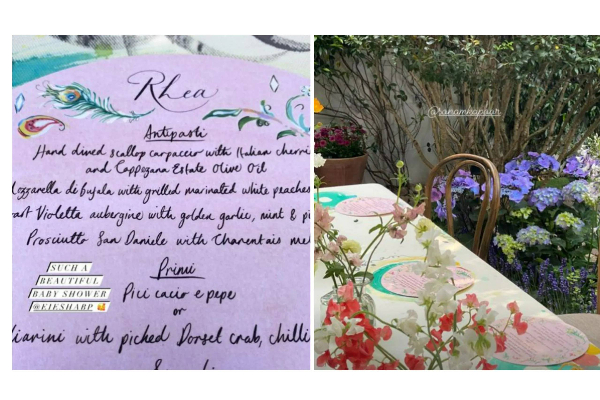 Rhea
Antipasti
Hand dived scallop carpaccio with Italian cherri
and Estate Olive Oil
ozzarella di bufala with grilled marinated white peaches
Violetta aubergine with golden garlic, mint & pi
Prosciutto San Daniele with Charentais mel
SUCH A
BEAUTIFUL
BABY SHOWER
@KIESHABP
Primi
Pici cacio e pepe
or
liarini with picked Dorset crab, chilli
@sonamkapoor